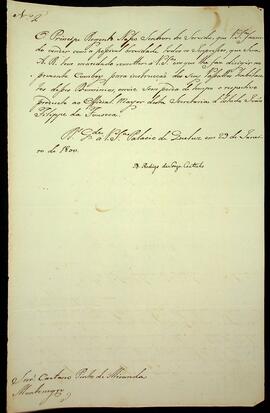 Nº 2
O Principe Regente Nosso Senhor he Servido, que V. Sª fazen-
do vender com a possivel brevidade todos os Impressos, que Sua
A. R. tem mandado remetter a V. Sª e os que lhe faz dirigir na
presente Comboy para instrucção dos Seus Vassallos habitan-
tes desses Dominios, envie sem perda de tempo o respectivo
producto ao Official Maior desta Secretaria d'Estado João
Filippe da Fonseca.
Ds. Gde. a V. Sª Palacio de Queluz em 23 de Janei-
ro de 1800.
D. Rodrigo de Souza Coutinho
Snr. Caetano Pinto de Miranda
Montenegro